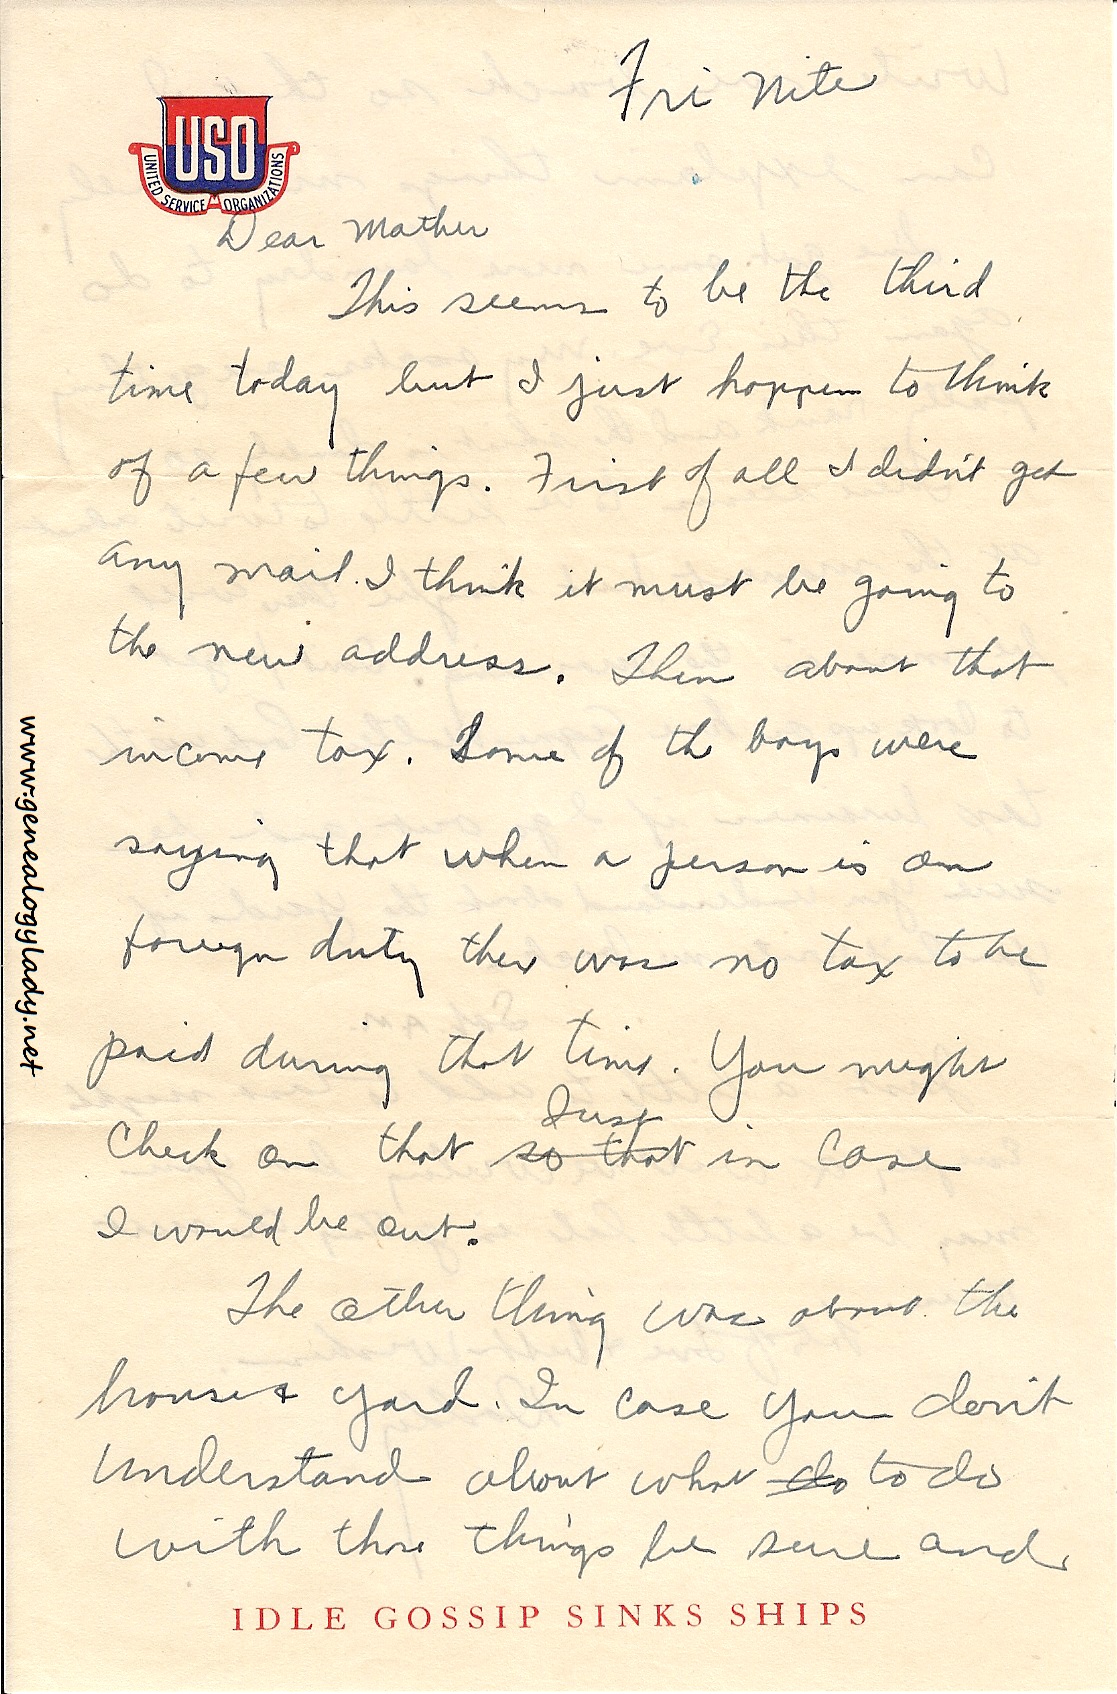 Fri Nite
USO
UNITED SERVICE ORGANIZATIONS
Dear Mother
This seems to be the third
time today but I just happen to think
of a few things. First of all I didn't get
any mail. I think it must be going to
the new address. Then about that
income tax. Some of the boys were
saying that when a person is on
foreign duty ther was no tax to be
paid during that time. You might
Just
Check on that so that in case
I would be out.
The other thing was about the
house & yard. In case you don't
understand about what do to do
with those things be sure and
IDLE GOSSIP SINKS SHIPS
www.genealogylady.net